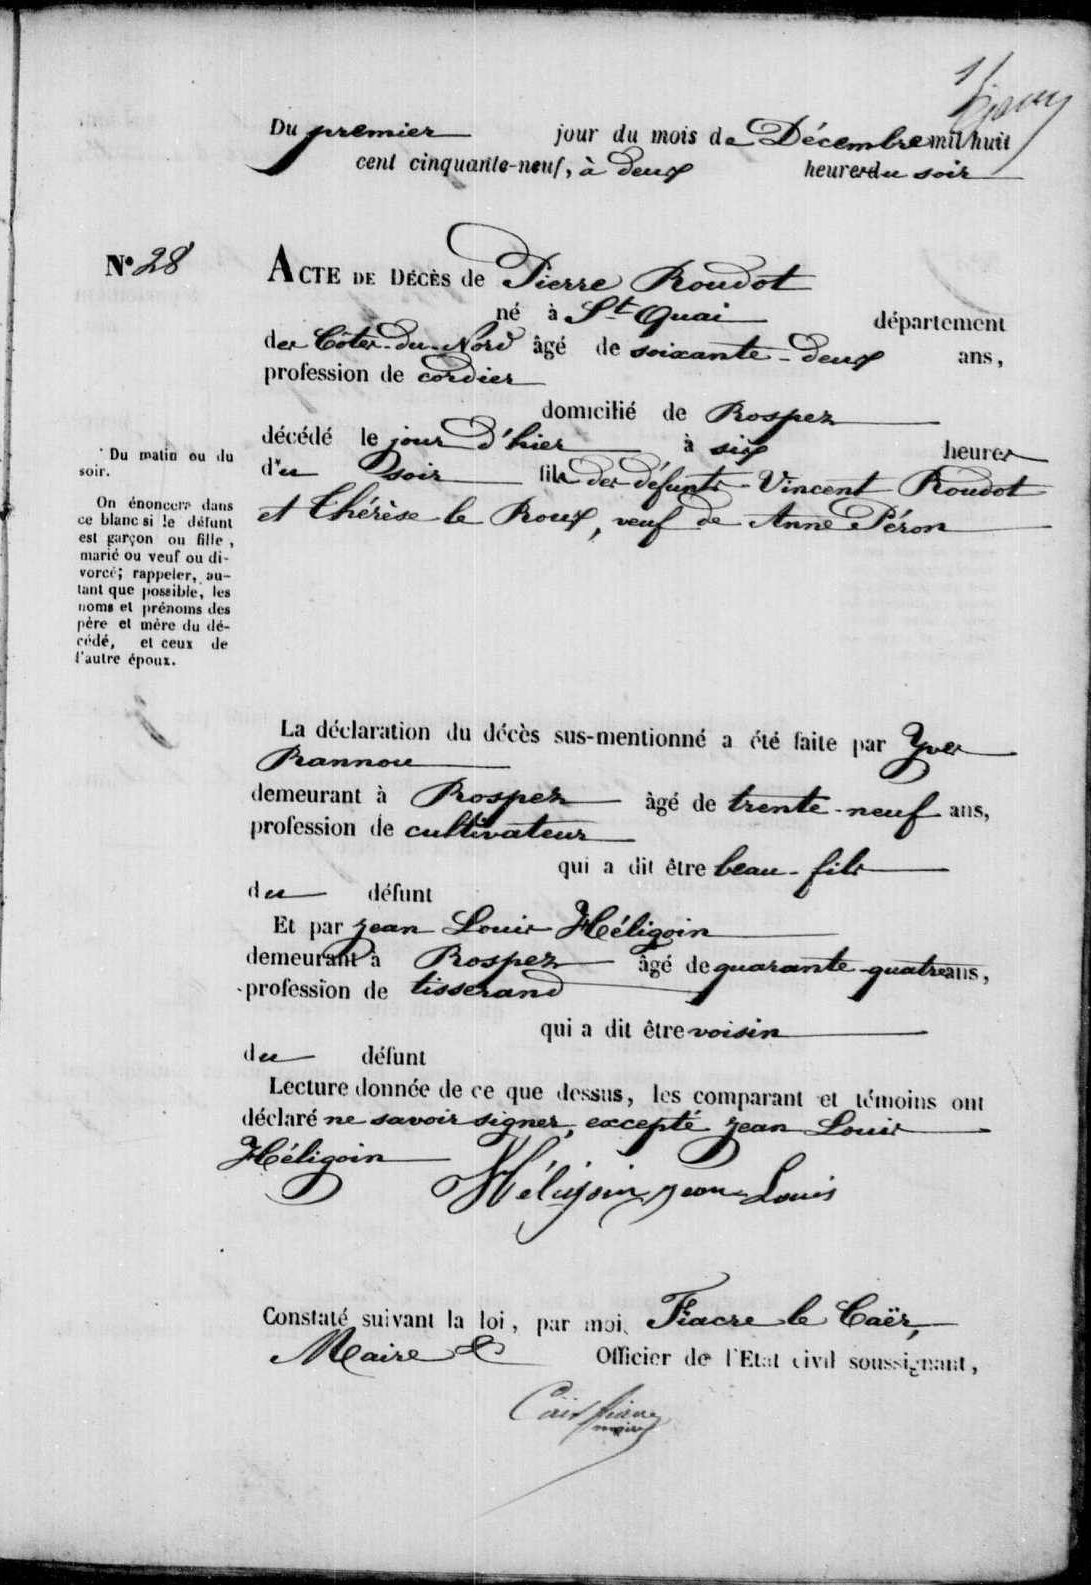 Du premier jour du mois de Décembre mil huit
cent cinquante-neuf, à deux heures du soir
N° 28
ACTE DE DÉCÈS de Pierre Roudot
né à St Quai département
des Côtes-du-Nord âgé de soixante-deux ans,
profession de cordier
domicilié de Rospez
décédé le jour d'hier à six heures
du soir fils des défunts Vincent Roudot
et Thérèse le Roux, veuf de Anne Péron
* Du matin ou du
soir.
On énoncera dans
ce blanc si le défunt
est garçon ou fille,
marié ou veuf ou di-
vorcé; rappeler, au-
tant que possible, les
noms et prénoms des
père et mère du dé-
cédé, et ceux de
l'autre époux.
La déclaration du décès sus-mentionné a été faite par Yves
Rannou
demeurant à Rospez âgé de trente-neuf ans,
profession de cultivateur
qui a dit être beau-fils
du défunt
Et par Jean Louis Héligoin
demeurant à Rospez âgé de quarante-quatre ans,
profession de tisserand
qui a dit être voisin
du défunt
Lecture donnée de ce que dessus, les comparant et témoins ont
déclaré ne savoir signer, excepté Jean Louis
Héligoin
Héligoin jean Louis
Constaté suivant la loi, par moi, Fiacre le Caër,
Maire & Officier de l'Etat civil soussignant,